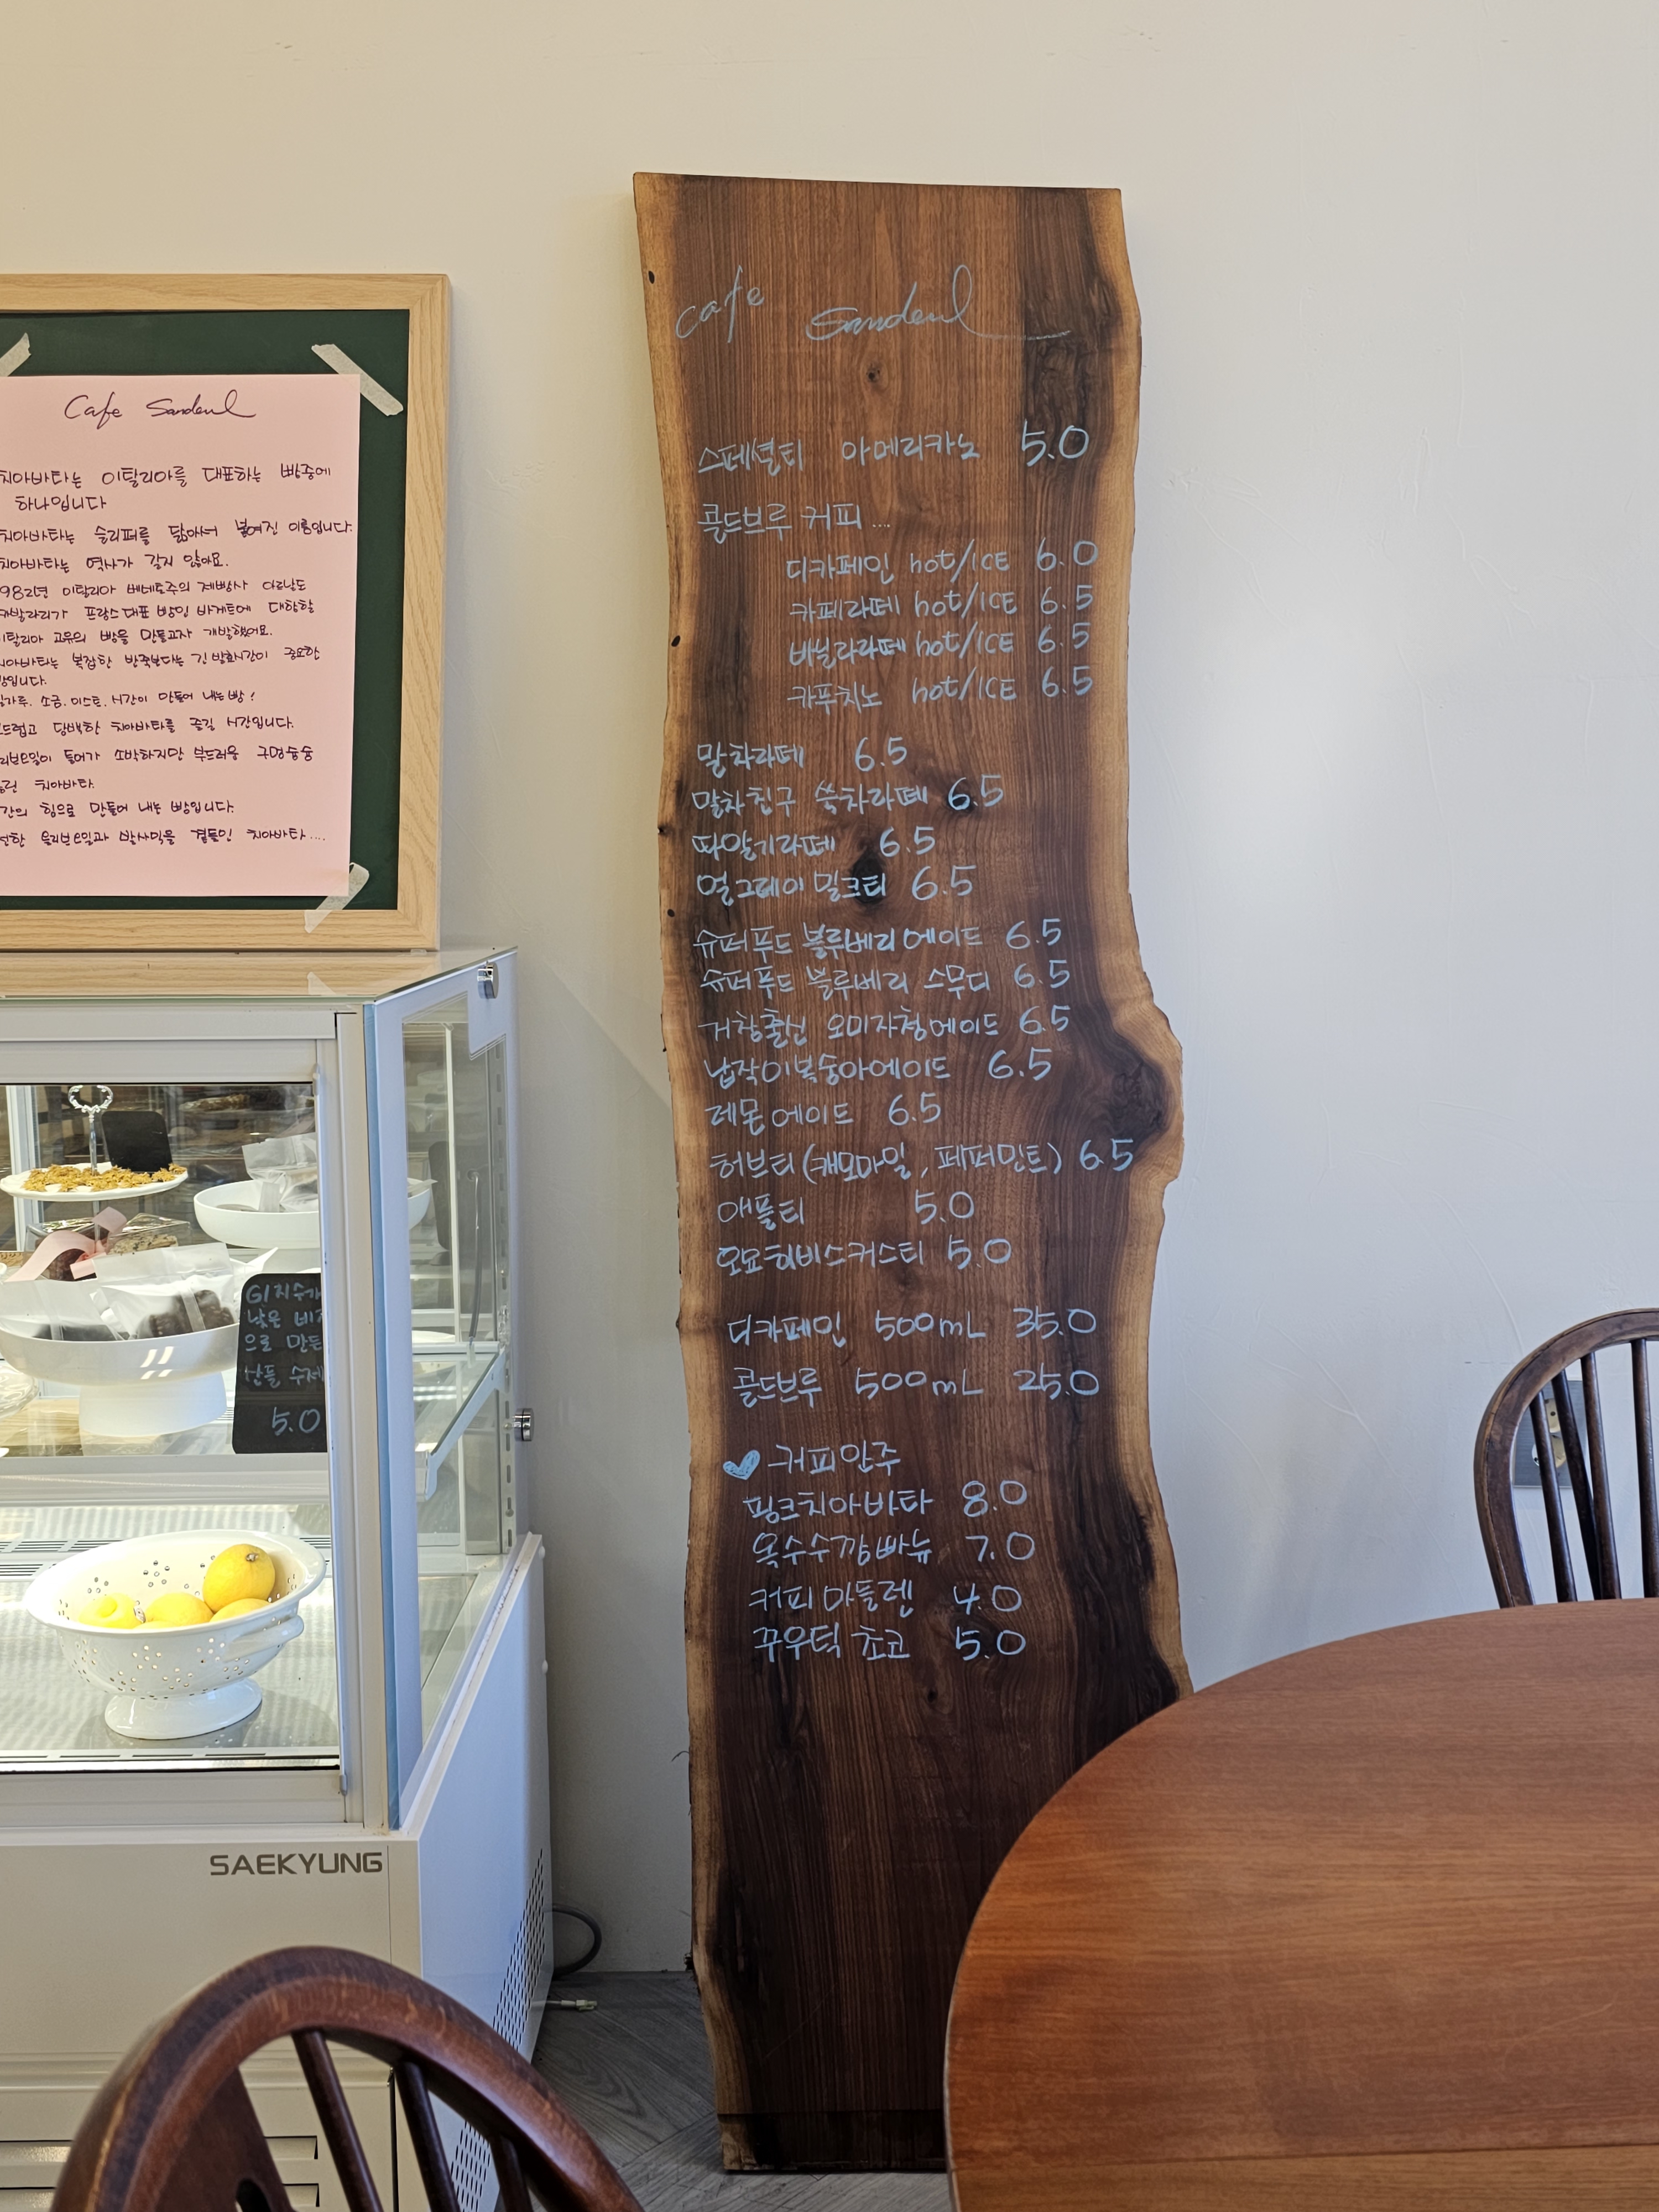 Cafe Sandeul
치아바타는 이탈리아를 대표하는 빵중에
하나입니다
치아바타는 슬리퍼를 닮아서 붙여진 이름입니다.
치아바타는 역사가 길지 않아요.
982년 이탈리아 베네토주의 제빵사 아르날도
카발라리가 프랑스 대표 빵인 바게트에 대항할
이탈리아 고유의 빵을 만들고자 개발했어요.
치아바타는 복잡한 반죽보다는 긴 발효시간이 중요한
빵입니다.
밀가루. 소금. 이스트. 시간이 만들어 내는 빵!
부드럽고 담백한 치아바타를 즐길 시간입니다.
올리브오일이 들어가 소박하지만 부드러움 구멍숭숭
치아바타.
시간의 힘으로 만들어 내는 빵입니다.
올리브오일과 발사믹을 곁들인 치아바타....
cafe Sandeul
스페셜티 아메리카노 5.0
콜드브루 커피...
디카페인 hot/ICE 6.0
카페라떼 hot/ICE 6.5
바닐라라떼 hot/ICE 6.5
카푸치노 hot/ICE 6.5
말차라떼 6.5
말차친구 쑥차라떼 6.5
따알기라떼 6.5
얼그레이 밀크티 6.5
슈퍼푸드 블루베리에이드 6.5
슈퍼푸드 블루베리 스무디 6.5
거창출신 오미자청에이드 6.5
납작이복숭아에이드 6.5
레몬에이드 6.5
허브티(캐모마일, 페퍼민트) 6.5
애플티 5.0
오묘히비스커스티 5.0
디카페인 500mL 35.0
콜드브루 500mL 25.0
커피안주
핑크치아바타 8.0
옥수수깜빠뉴 7.0
커피 마들렌 4.0
꾸우덕 초코 5.0
GI지수가
낮은
으로 만든
산들 수제
5.0
SAEKYUNG